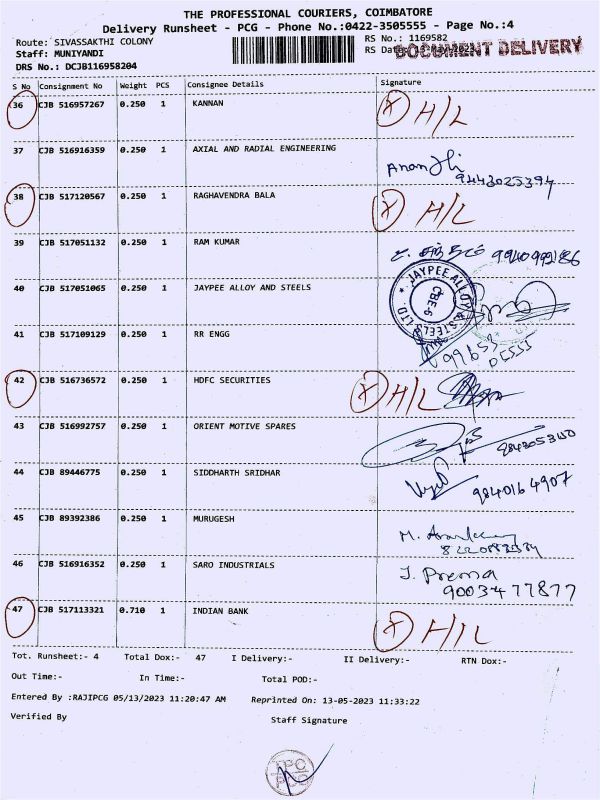 THE PROFESSIONAL COURIERS, COIMBATORE
Delivery Runsheet - PCG - Phone No.:0422-3505555 - Page No.:4
Route: SIVASSAKTHI COLONY RS No.: 1169582
Staff: MUNIYANDI RS Date: 13-May-2023 DOCUMENT DELIVERY
DRS No.: DCJB116958204
S No Consignment No Weight PCS Consignee Details Signature
36 CJB 516957267 0.250 1 KANNAN X H/L
37 CJB 516916359 0.250 1 AXIAL AND RADIAL ENGINEERING
9443025394
38 CJB 517120567 0.250 1 RAGHAVENDRA BALA X H/L
39 CJB 517051132 0.250 1 RAM KUMAR
40 CJB 517051065 0.250 1 JAYPEE ALLOY AND STEELS JAYPEE ALLOY & STEELS LTD. CBE-6
41 CJB 517109129 0.250 1 RR ENGG
42 CJB 516736572 0.250 1 HDFC SECURITIES X H/L
43 CJB 516992757 0.250 1 ORIENT MOTIVE SPARES
44 CJB 89446775 0.250 1 SIDDHARTH SRIDHAR 9840164907
45 CJB 89392386 0.250 1 MURUGESH
46 CJB 516916352 0.250 1 SARO INDUSTRIALS J. Prema
9003477877
47 CJB 517113321 0.710 1 INDIAN BANK X H/L
Tot. Runsheet:- 4 Total Dox:- 47 I Delivery:- II Delivery:- RTN Dox:-
Out Time:- In Time:- Total POD:-
Entered By :RAJIPCG 05/13/2023 11:20:47 AM Reprinted On: 13-05-2023 11:33:22
Verified By Staff Signature